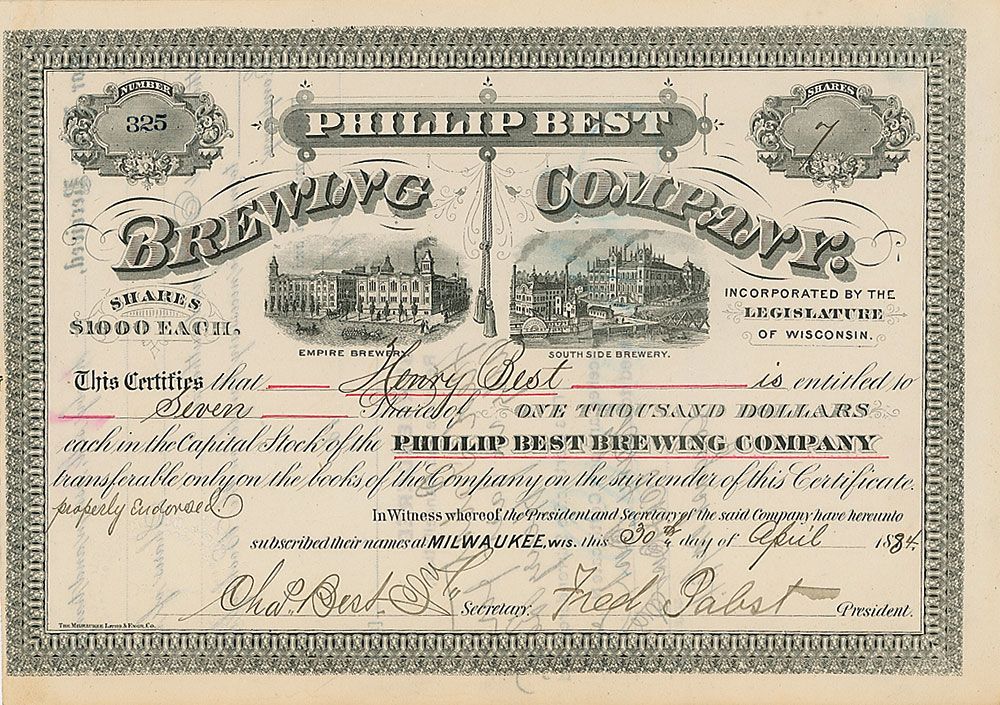 NUMBER
325
SHARES
7
PHILLIP BEST
BREWING COMPANY.
SHARES
$1000 EACH.
EMPIRE BREWERY.
SOUTH SIDE BREWERY.
INCORPORATED BY THE
LEGISLATURE
OF WISCONSIN.
This Certifies that Henry Best is entitled to
Seven Shares of ONE THOUSAND DOLLARS
each in the Capital Stock of the PHILLIP BEST BREWING COMPANY
transferable only on the books of the Company on the surrender of this Certificate.
properly Endorsed.
In Witness whereof the President and Secretary of the said Company have hereunto
subscribed their names at MILWAUKEE, WIS. this 30th day of April 1884.
Chas. Best Jr. Secretary. Fred Pabst President.
THE MILWAUKEE LITHO & ENGR. CO.